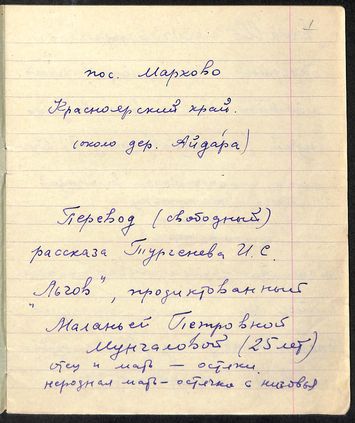 1
пос. Марково
Красноярский край.
(около дер. Айдара)
Перевод (свободный)
рассказа Тургенева И.С.
"Льгов", продиктованный
Маланьей Петровной
Мунгаловой (25 лет)
отец и мать – остяки.
неродная мать – остячка с низовья